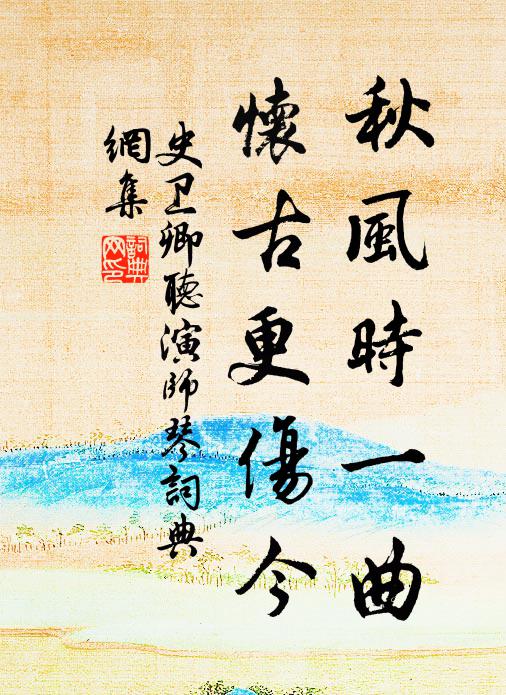 秋風時一曲
懷古更傷今
史卫卿聽演師琴詞典
網集
詞典
网印